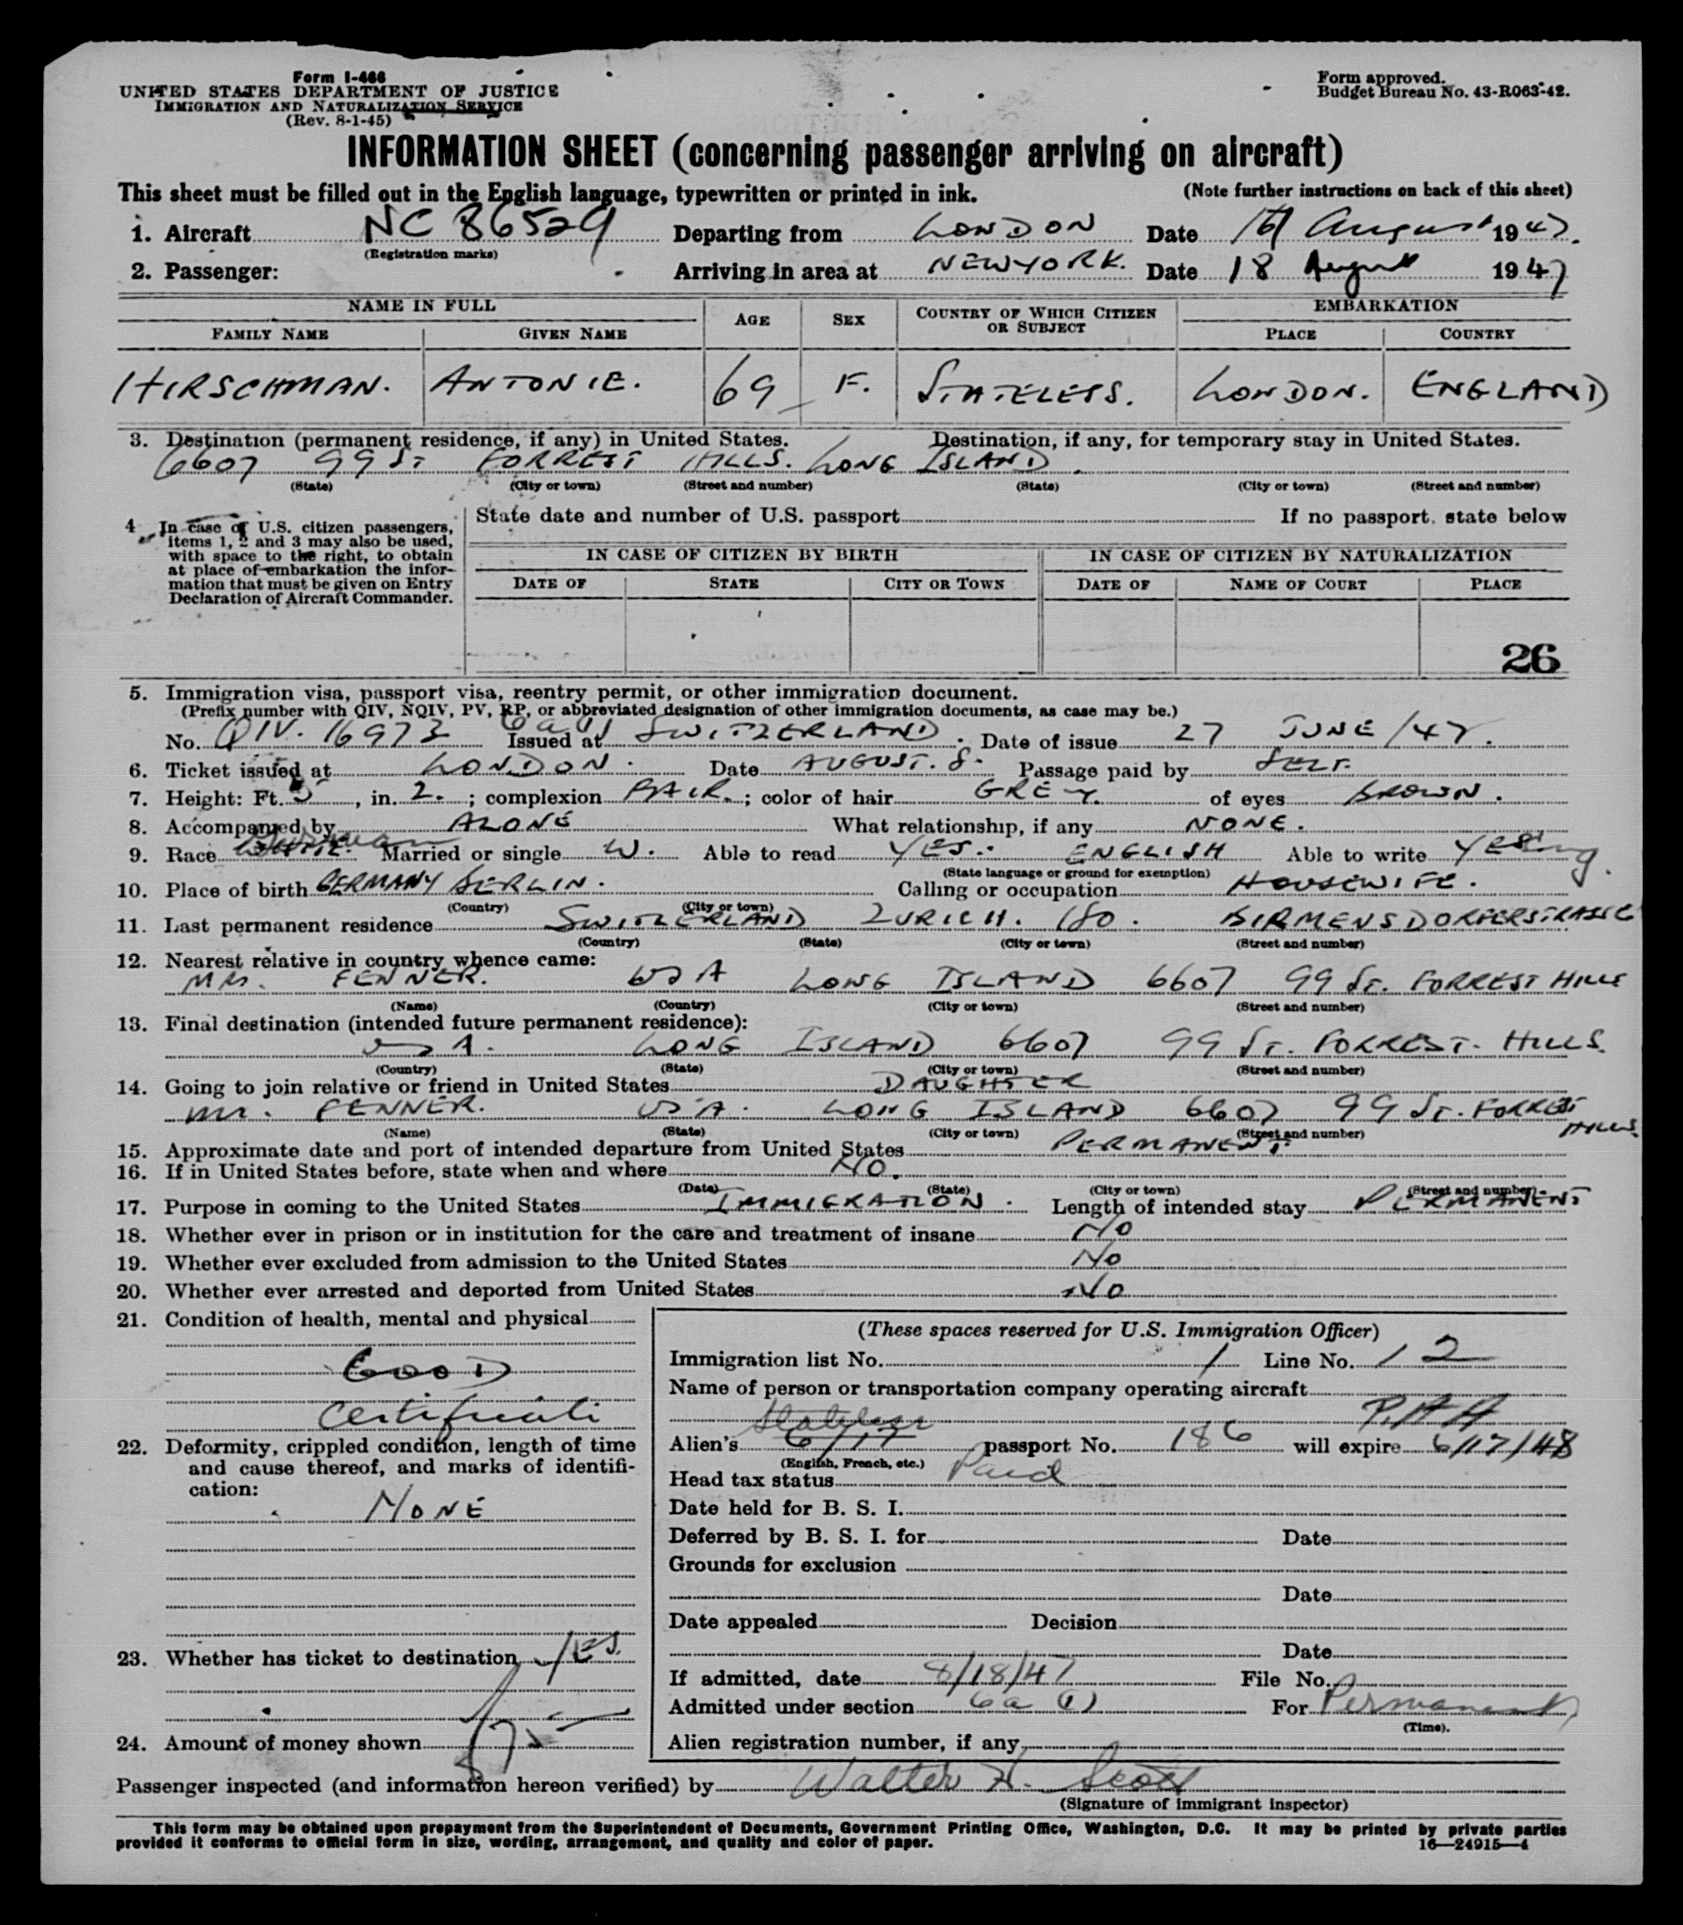 Form I-466
UNITED STATES DEPARTMENT OF JUSTICE
IMMIGRATION AND NATURALIZATION SERVICE
(Rev. 8-1-45)
Form approved.
Budget Bureau No. 43-R063-42.
INFORMATION SHEET (concerning passenger arriving on aircraft)
This sheet must be filled out in the English language, typewritten or printed in ink. (Note further instructions on back of this sheet)
1. Aircraft NC 86529 Departing from LONDON Date August 1947.
(Registration marks)
2. Passenger: Arriving in area at NEWYORK. Date 18 August 1947
NAME IN FULL AGE SEX COUNTRY OF WHICH CITIZEN OR SUBJECT EMBARKATION
FAMILY NAME GIVEN NAME PLACE COUNTRY
HIRSCHMAN. ANTONIE. 69 F. STATELESS. LONDON. ENGLAND
3. Destination (permanent residence, if any) in United States. Destination, if any, for temporary stay in United States.
6607 99 St FORREST HILLS. LONG ISLAND.
(State) (City or town) (Street and number) (State) (City or town) (Street and number)
4 In case of U.S. citizen passengers, items 1, 2 and 3 may also be used, with space to the right, to obtain at place of embarkation the information that must be given on Entry Declaration of Aircraft Commander.
State date and number of U.S. passport If no passport, state below
IN CASE OF CITIZEN BY BIRTH IN CASE OF CITIZEN BY NATURALIZATION
DATE OF STATE CITY OR TOWN DATE OF NAME OF COURT PLACE
26
5. Immigration visa, passport visa, reentry permit, or other immigration document.
(Prefix number with QIV, NQIV, PV, RP, or abbreviated designation of other immigration documents, as case may be.)
No. QIV. 16973 6a(1) Issued at SWITZERLAND. Date of issue 27 JUNE/47.
6. Ticket issued at LONDON. Date AUGUST. 8. Passage paid by SELF.
7. Height: Ft. 5, in. 2.; complexion FAIR.; color of hair GREY. of eyes BROWN.
8. Accompanied by ALONE What relationship, if any NONE.
9. Race WHITE. German Married or single W. Able to read YES. ENGLISH Able to write YES.
(State language or ground for exemption)
10. Place of birth GERMANY BERLIN. Calling or occupation HOUSEWIFE.
(Country) (City or town)
11. Last permanent residence SWITZERLAND ZURICH. 180. BIRMENSDORFERSTRASSE
(Country) (State) (City or town) (Street and number)
12. Nearest relative in country whence came:
MRS. FENNER. USA LONG ISLAND 6607 99 St. FORREST HILLS
(Name) (Country) (City or town) (Street and number)
13. Final destination (intended future permanent residence):
USA. LONG ISLAND 6607 99 St. FORREST. HILLS.
(Country) (State) (City or town) (Street and number)
14. Going to join relative or friend in United States DAUGHTER
FENNER. USA. LONG ISLAND 6607 99 St. FORREST HILLS.
(Name) (State) (City or town) (Street and number)
15. Approximate date and port of intended departure from United States PERMANENT
16. If in United States before, state when and where NO.
(Date) (State) (City or town) (Street and number)
17. Purpose in coming to the United States IMMIGRATION. Length of intended stay PERMANENT
18. Whether ever in prison or in institution for the care and treatment of insane NO
19. Whether ever excluded from admission to the United States NO
20. Whether ever arrested and deported from United States NO
21. Condition of health, mental and physical
GOOD
Certificate
22. Deformity, crippled condition, length of time and cause thereof, and marks of identification:
NONE
23. Whether has ticket to destination YES.
24. Amount of money shown
(These spaces reserved for U.S. Immigration Officer)
Immigration list No. 1 Line No. 12
Name of person or transportation company operating aircraft
PAA
Stateless
Alien's 6/17 passport No. 186 will expire 6/17/48
(English, French, etc.)
Head tax status Paid
Date held for B. S. I.
Deferred by B. S. I. for Date
Grounds for exclusion
Date
Date appealed Decision
Date
If admitted, date 8/18/47 File No.
Admitted under section 6a (1) For Permanent
(Time).
Alien registration number, if any
Passenger inspected (and information hereon verified) by Walter H. Scott
(Signature of immigrant inspector)
This form may be obtained upon prepayment from the Superintendent of Documents, Government Printing Office, Washington, D.C. It may be printed by private parties
provided it conforms to official form in size, wording, arrangement, and quality and color of paper. 16—24915—4